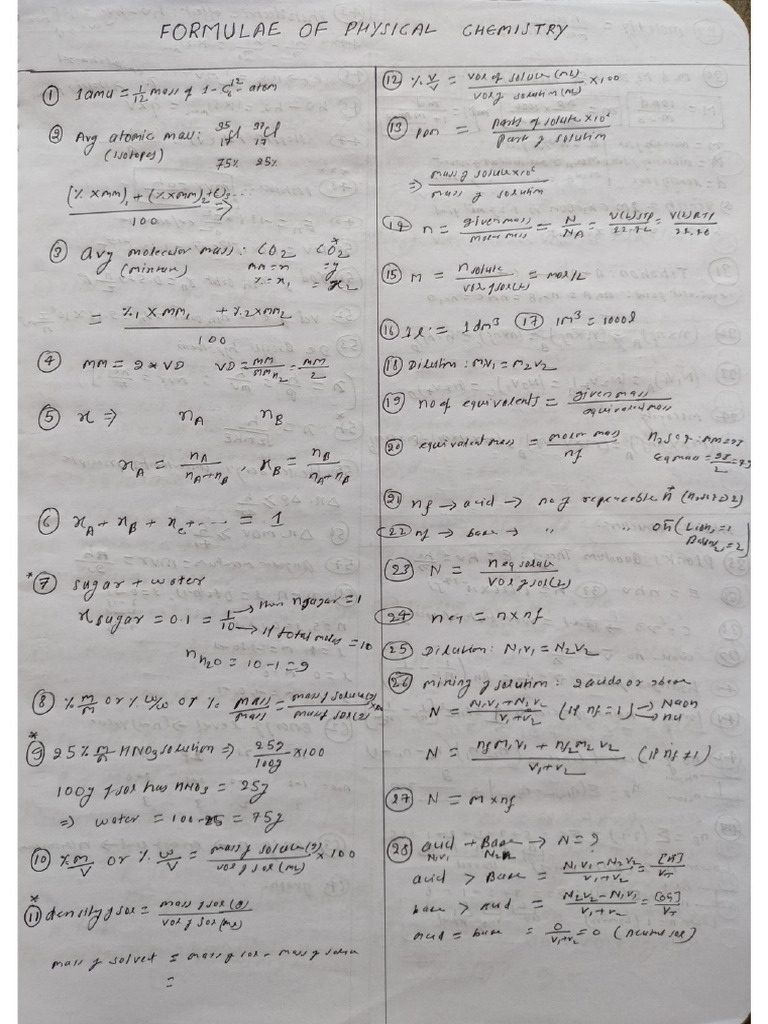 FORMULAE OF PHYSICAL CHEMISTRY
① 1amu = 1/12 mass of 1 - C₆¹² atom
② Avg atomic mass: ³⁵₁₇Cl ³⁷₁₇Cl
(isotopes) 75% 25%
(% x mm)₁ + (% x mm)₂ + ()₃... / 100 ⇒
③ Avg molecular mass: CO2 , CO2*
(mixture) mm = x = y
% = x₁ = x₂
= %1 x mm1 + %2 x mm2 / 100
④ MM = 2 * VD VD = MM/MMH2 = MM/2
⑤ x ⇒ nA nB
xA = nA/nA+nB , xB = nB/nA+nB
⑥ xA + xB + xC + .... = 1
*⑦ sugar + water
x sugar = 0.1 = 1/10 → then nsugar = 1
→ if total moles = 10
nH2O = 10-1 = 9
⑧ % m/m or % w/w or % mass/mass = mass of solute(g)/mass of sol(g) x100
*⑨ 25% m/m HNO3 solution ⇒ 25g/100g x100
100g of sol has HNO3 = 25g
⇒ water = 100-25 = 75g
⑩ % m/v or % w/v = mass of solute(g)/vol of sol(mL) x 100
*⑪ density of sol = mass of sol(g)/vol of sol(mL)
mass of solvent = mass of sol - mass of solute
=
⑫ % v/v = vol of solute(mL)/vol of solution(mL) x100
⑬ ppm = parts of solute x 10⁶/part of solution
⇒ mass of solute x 10⁶/mass of solution
⑭ n = given mass/molar mass = N/NA = V(L)STP/22.4L = V(L)RTP
⑮ M = n solute/vol of sol(L) = mol/L
⑯ 1l := 1dm³ ⑰ 1m³ = 1000l
⑱ Dilution: M1V1 = M2V2
⑲ no of equivalents = given mass/equivalent mass
⑳ equivalent mass = molar mass/nf H2SO4: MM = 98
Eqmass = 98/2 = 49
㉑ nf → acid → no of replaceable H⁺ (H2SO4 = 2)
㉒ nf → base → " OH⁻ (LiOH = 1
Ba(OH)2 = 2)
㉓ N = neq solute/vol of sol(L)
㉔ neq = n x nf
㉕ Dilution: N1V1 = N2V2
㉖ mixing of solution: 2 acids or 2 base
N = N1V1 + N2V2/V1+V2 (if nf = 1) → NaOH
→ HCl
N = nf1M1V1 + nf2M2V2/V1+V2 (if nf ≠ 1)
㉗ N = M x nf
㉘ acid + Base → N = ?
N1V1 N2V2
acid > Base = N1V1 - N2V2/V1+V2 = [H⁺]/VT
base > acid = N2V2 - N1V1/V1+V2 = [OH⁻]/VT
acid = base = 0/V1+V2 = 0 (neutral sol)